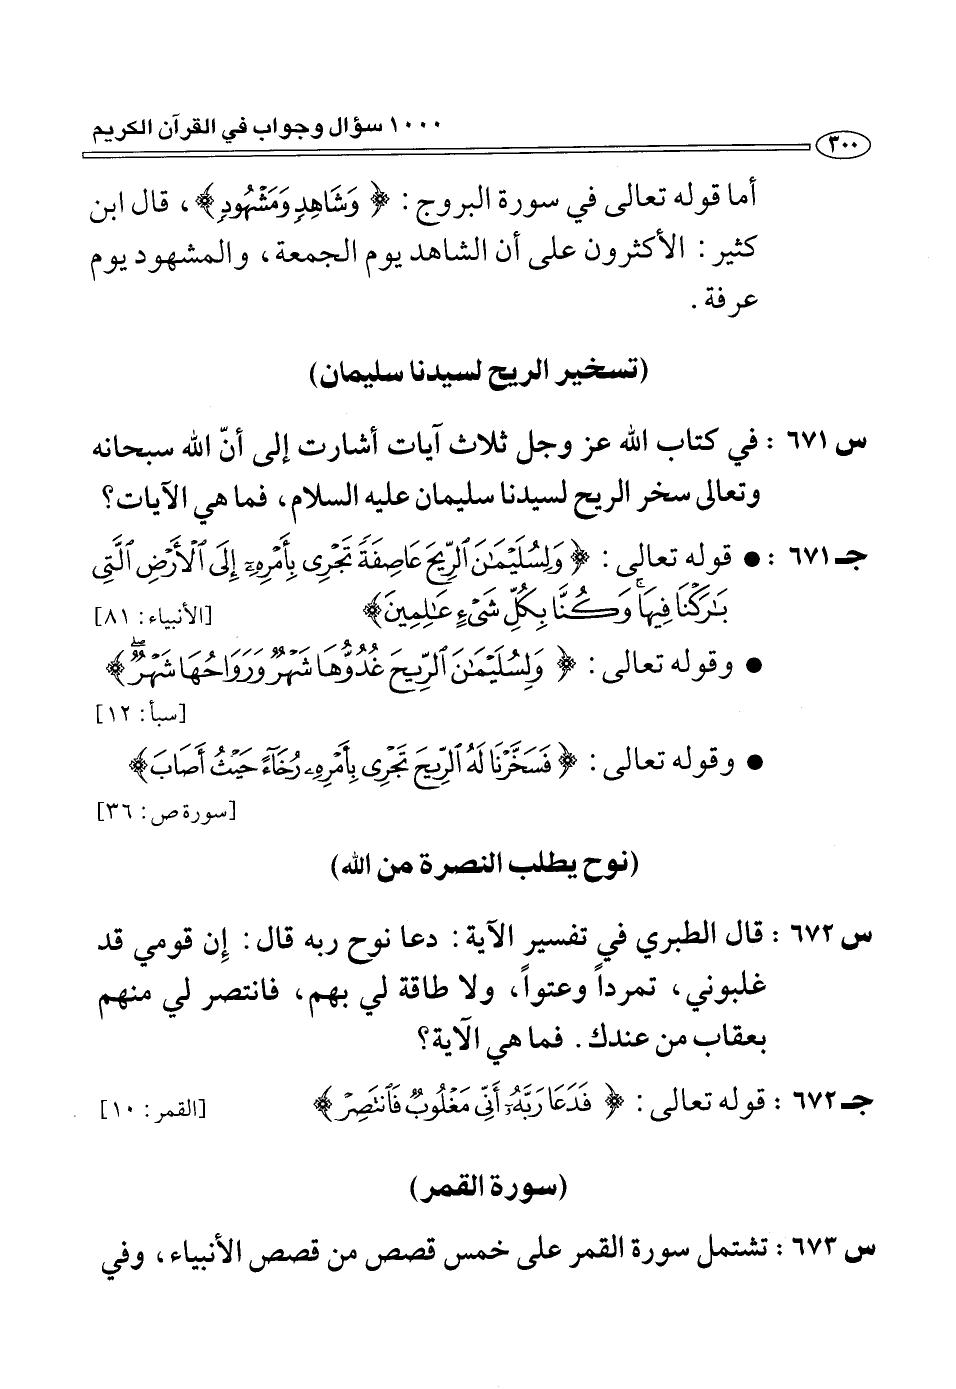 ١٠٠٠ سؤال وجواب في القرآن الكريم
٣٠٠
أما قوله تعالى في سورة البروج : ﴿ وَشَاهِدٍ وَمَشْهُودٍ ﴾ ، قال ابن
كثير : الأكثرون على أن الشاهد يوم الجمعة ، والمشهود يوم
عرفة .
(تسخير الريح لسيدنا سليمان)
س ٦٧١ : في كتاب الله عز وجل ثلاث آيات أشارت إلى أنّ الله سبحانه
وتعالى سخر الريح لسيدنا سليمان عليه السلام ، فما هي الآيات ؟
جـ ٦٧١ : ● قوله تعالى : ﴿ وَلِسُلَيْمَٰنَ ٱلرِّيحَ عَاصِفَةً تَجْرِى بِأَمْرِهِۦٓ إِلَى ٱلْأَرْضِ ٱلَّتِى
بَٰرَكْنَا فِيهَا ۚ وَكُنَّا بِكُلِّ شَىْءٍ عَٰلِمِينَ ﴾ [الأنبياء : ٨١]
● وقوله تعالى : ﴿ وَلِسُلَيْمَٰنَ ٱلرِّيحَ غُدُوُّهَا شَهْرٌ وَرَوَاحُهَا شَهْرٌ ۖ ﴾
[سبأ : ١٢]
● وقوله تعالى : ﴿ فَسَخَّرْنَا لَهُ ٱلرِّيحَ تَجْرِى بِأَمْرِهِۦ رُخَآءً حَيْثُ أَصَابَ ﴾
[سورة ص : ٣٦]
(نوح يطلب النصرة من الله)
س ٦٧٢ : قال الطبري في تفسير الآية : دعا نوح ربه قال : إن قومي قد
غلبوني ، تمرداً وعتواً ، ولا طاقة لي بهم ، فانتصر لي منهم
بعقاب من عندك . فما هي الآية ؟
جـ ٦٧٢ : قوله تعالى : ﴿ فَدَعَا رَبَّهُۥٓ أَنِّى مَغْلُوبٌ فَٱنتَصِرْ ﴾ [القمر : ١٠]
(سورة القمر)
س ٦٧٣ : تشتمل سورة القمر على خمس قصص من قصص الأنبياء ، وفي